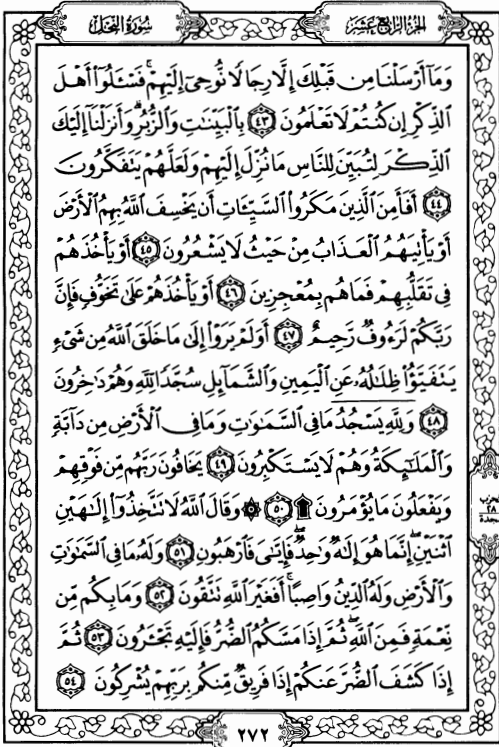 سُورَةُ النَّحْلِ
الجُزْءُ الرَّابِعَ عَشَرَ
وَمَآ أَرْسَلْنَا مِن قَبْلِكَ إِلَّا رِجَالًا نُّوحِىٓ إِلَيْهِمْ ۚ فَسْـَٔلُوٓا۟ أَهْلَ
ٱلذِّكْرِ إِن كُنتُمْ لَا تَعْلَمُونَ ٤٣ بِٱلْبَيِّنَـٰتِ وَٱلزُّبُرِ ۗ وَأَنزَلْنَآ إِلَيْكَ
ٱلذِّكْرَ لِتُبَيِّنَ لِلنَّاسِ مَا نُزِّلَ إِلَيْهِمْ وَلَعَلَّهُمْ يَتَفَكَّرُونَ
٤٤ أَفَأَمِنَ ٱلَّذِينَ مَكَرُوا۟ ٱلسَّيِّـَٔاتِ أَن يَخْسِفَ ٱللَّهُ بِهِمُ ٱلْأَرْضَ
أَوْ يَأْتِيَهُمُ ٱلْعَذَابُ مِنْ حَيْثُ لَا يَشْعُرُونَ ٤٥ أَوْ يَأْخُذَهُمْ
فِى تَقَلُّبِهِمْ فَمَا هُم بِمُعْجِزِينَ ٤٦ أَوْ يَأْخُذَهُمْ عَلَىٰ تَخَوُّفٍ فَإِنَّ
رَبَّكُمْ لَرَءُوفٌ رَّحِيمٌ ٤٧ أَوَلَمْ يَرَوْا۟ إِلَىٰ مَا خَلَقَ ٱللَّهُ مِن شَىْءٍ
يَتَفَيَّؤُا۟ ظِلَـٰلُهُۥ عَنِ ٱلْيَمِينِ وَٱلشَّمَآئِلِ سُجَّدًا لِّلَّهِ وَهُمْ دَٰخِرُونَ
٤٨ وَلِلَّهِ يَسْجُدُ مَا فِى ٱلسَّمَـٰوَٰتِ وَمَا فِى ٱلْأَرْضِ مِن دَآبَّةٍ
وَٱلْمَلَـٰٓئِكَةُ وَهُمْ لَا يَسْتَكْبِرُونَ ٤٩ يَخَافُونَ رَبَّهُم مِّن فَوْقِهِمْ
وَيَفْعَلُونَ مَا يُؤْمَرُونَ ۩ ٥٠ ۞ وَقَالَ ٱللَّهُ لَا تَتَّخِذُوٓا۟ إِلَـٰهَيْنِ
ٱثْنَيْنِ ۖ إِنَّمَا هُوَ إِلَـٰهٌ وَٰحِدٌ ۖ فَإِيَّـٰىَ فَٱرْهَبُونِ ٥١ وَلَهُۥ مَا فِى ٱلسَّمَـٰوَٰتِ
وَٱلْأَرْضِ وَلَهُ ٱلدِّينُ وَاصِبًا ۚ أَفَغَيْرَ ٱللَّهِ تَتَّقُونَ ٥٢ وَمَا بِكُم مِّن
نِّعْمَةٍ فَمِنَ ٱللَّهِ ۖ ثُمَّ إِذَا مَسَّكُمُ ٱلضُّرُّ فَإِلَيْهِ تَجْـَٔرُونَ ٥٣ ثُمَّ
إِذَا كَشَفَ ٱلضُّرَّ عَنكُمْ إِذَا فَرِيقٌ مِّنكُم بِرَبِّهِمْ يُشْرِكُونَ ٥٤
٢٧٢